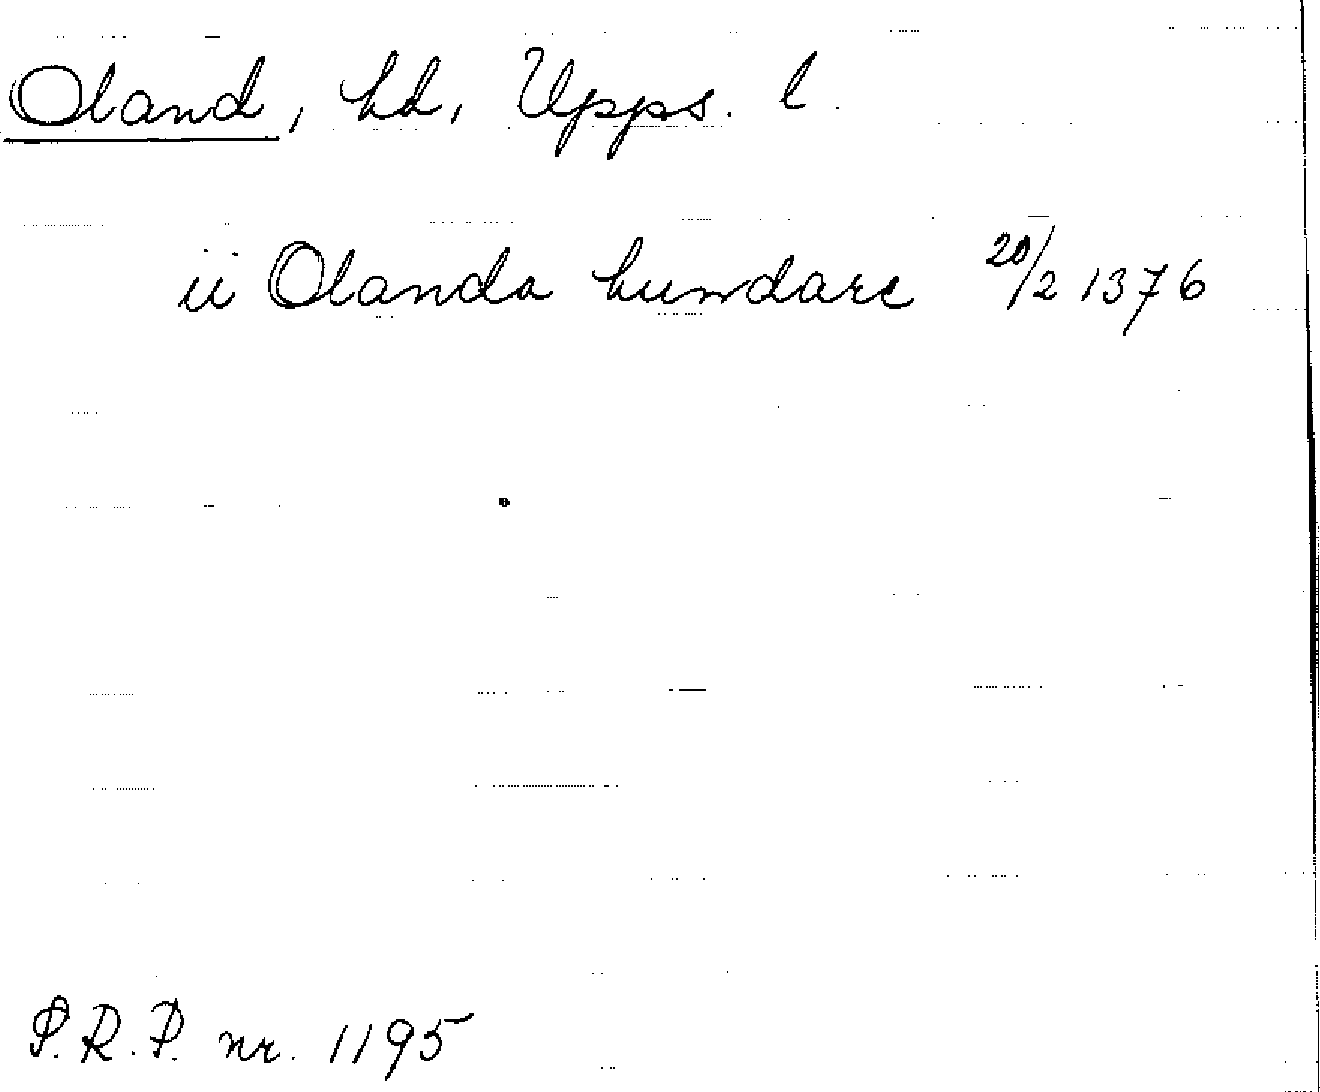 Oland, hd, Upps. l.
ii Olanda hundare 20/2 1376
S.R.P. nr. 1195